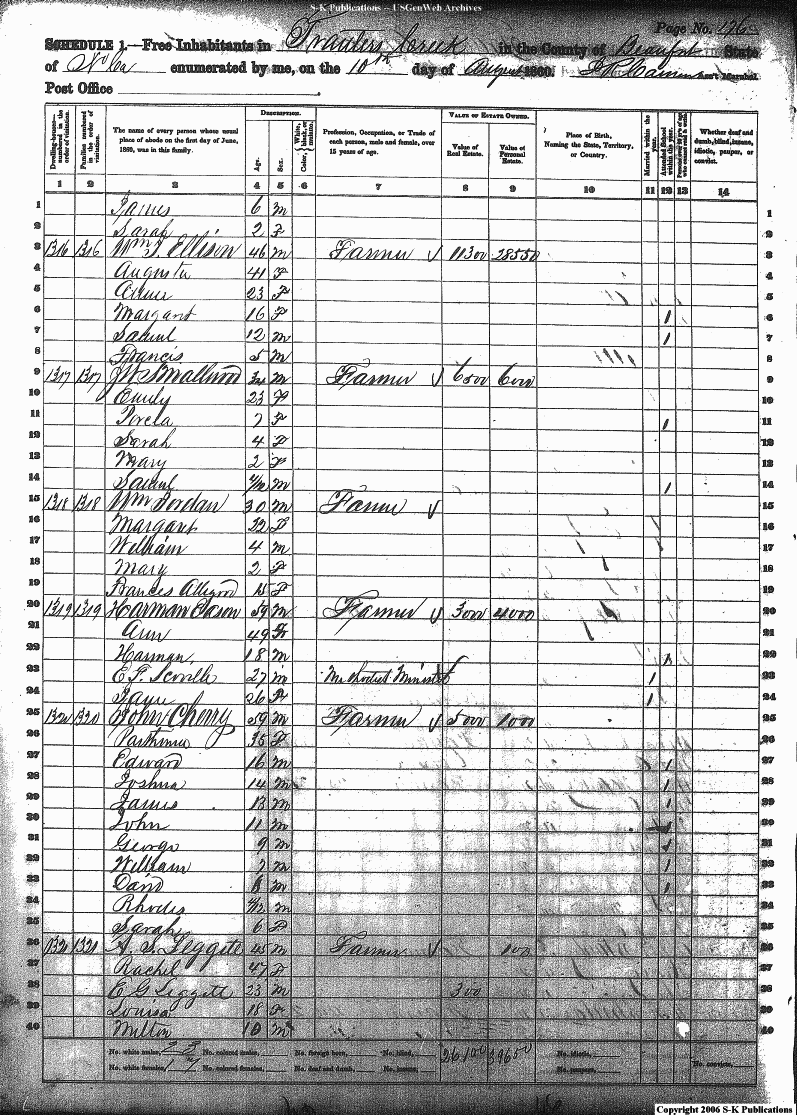 S-K Publications -- USGenWeb Archives
Page No. 176
SCHEDULE 1.—Free Inhabitants in Tranters Creek in the County of Beaufort State
of No Ca enumerated by me, on the 10th day of August 1860. Ass't Marshal.
Post Office
Dwelling-houses—numbered in the order of visitation.
Families numbered in the order of visitation.
The name of every person whose usual place of abode on the first day of June, 1860, was in this family.
DESCRIPTION.
Age.
Sex.
Color,
Profession, Occupation, or Trade of each person, male and female, over 15 years of age.
VALUE OF ESTATE OWNED.
Value of Real Estate.
Value of Personal Estate.
Place of Birth, Naming the State, Territory, or Country.
Married within the year.
Attended School within the year.
Whether deaf and dumb, blind, insane, idiotic, pauper, or convict.
1 2 3 4 5 6 7 8 9 10 11 12 13 14
1 James 6 m 1
2 Sarah 2 F 2
3 1316 1316 Wm T. Ellison 46 m Farmer √ 11300 28550 3
4 Augusta 41 F 4
5 23 F 5
6 Margaret 16 F 1 6
7 Samuel 12 m 1 7
8 Francis 5 m 8
9 1317 1317 Smallwood m Farmer √ 6500 6000 9
10 Emily 23 F 10
11 7 F 1 11
12 Sarah 4 F 12
13 Mary 2 F 13
14 Samuel m 1 14
15 1318 1318 Wm Jordan 30 m Farmer √ 15
16 Margaret 22 F 16
17 William 4 m 17
18 Mary 2 F 18
19 Frances Alligood 15 F 19
20 1319 1319 Harman Eason 59 m Farmer √ 3000 4000 20
21 Ann 49 F 21
22 Harman 18 m 22
23 E. F. Scoville 27 m Methodist Minister 1 23
24 Jane 26 F 1 24
25 1320 1320 John Cherry 59 m Farmer √ 5000 1000 25
26 35 F 26
27 Edward 16 m 1 27
28 Joshua 14 m 1 28
29 James 13 m 1 29
30 John 11 m 1 30
31 George 9 m 1 31
32 William 7 m 1 32
33 David 8 m 1 33
34 Rhodes m 34
35 Sarah 6 F 35
36 1321 1321 H. S. Leggett 45 m Farmer √ 100 36
37 Rachel 47 F 37
38 E G Leggett 23 m 300 38
39 Louisa 18 F 39
40 Milton 10 m 40
No. white males, 23 No. colored males, No. foreign born, No. blind, 26100 39650 No. idiotic,
No. white females, 17 No. colored females, No. deaf and dumb, No. insane, No. paupers, No. convicts,
Copyright 2006 S-K Publications